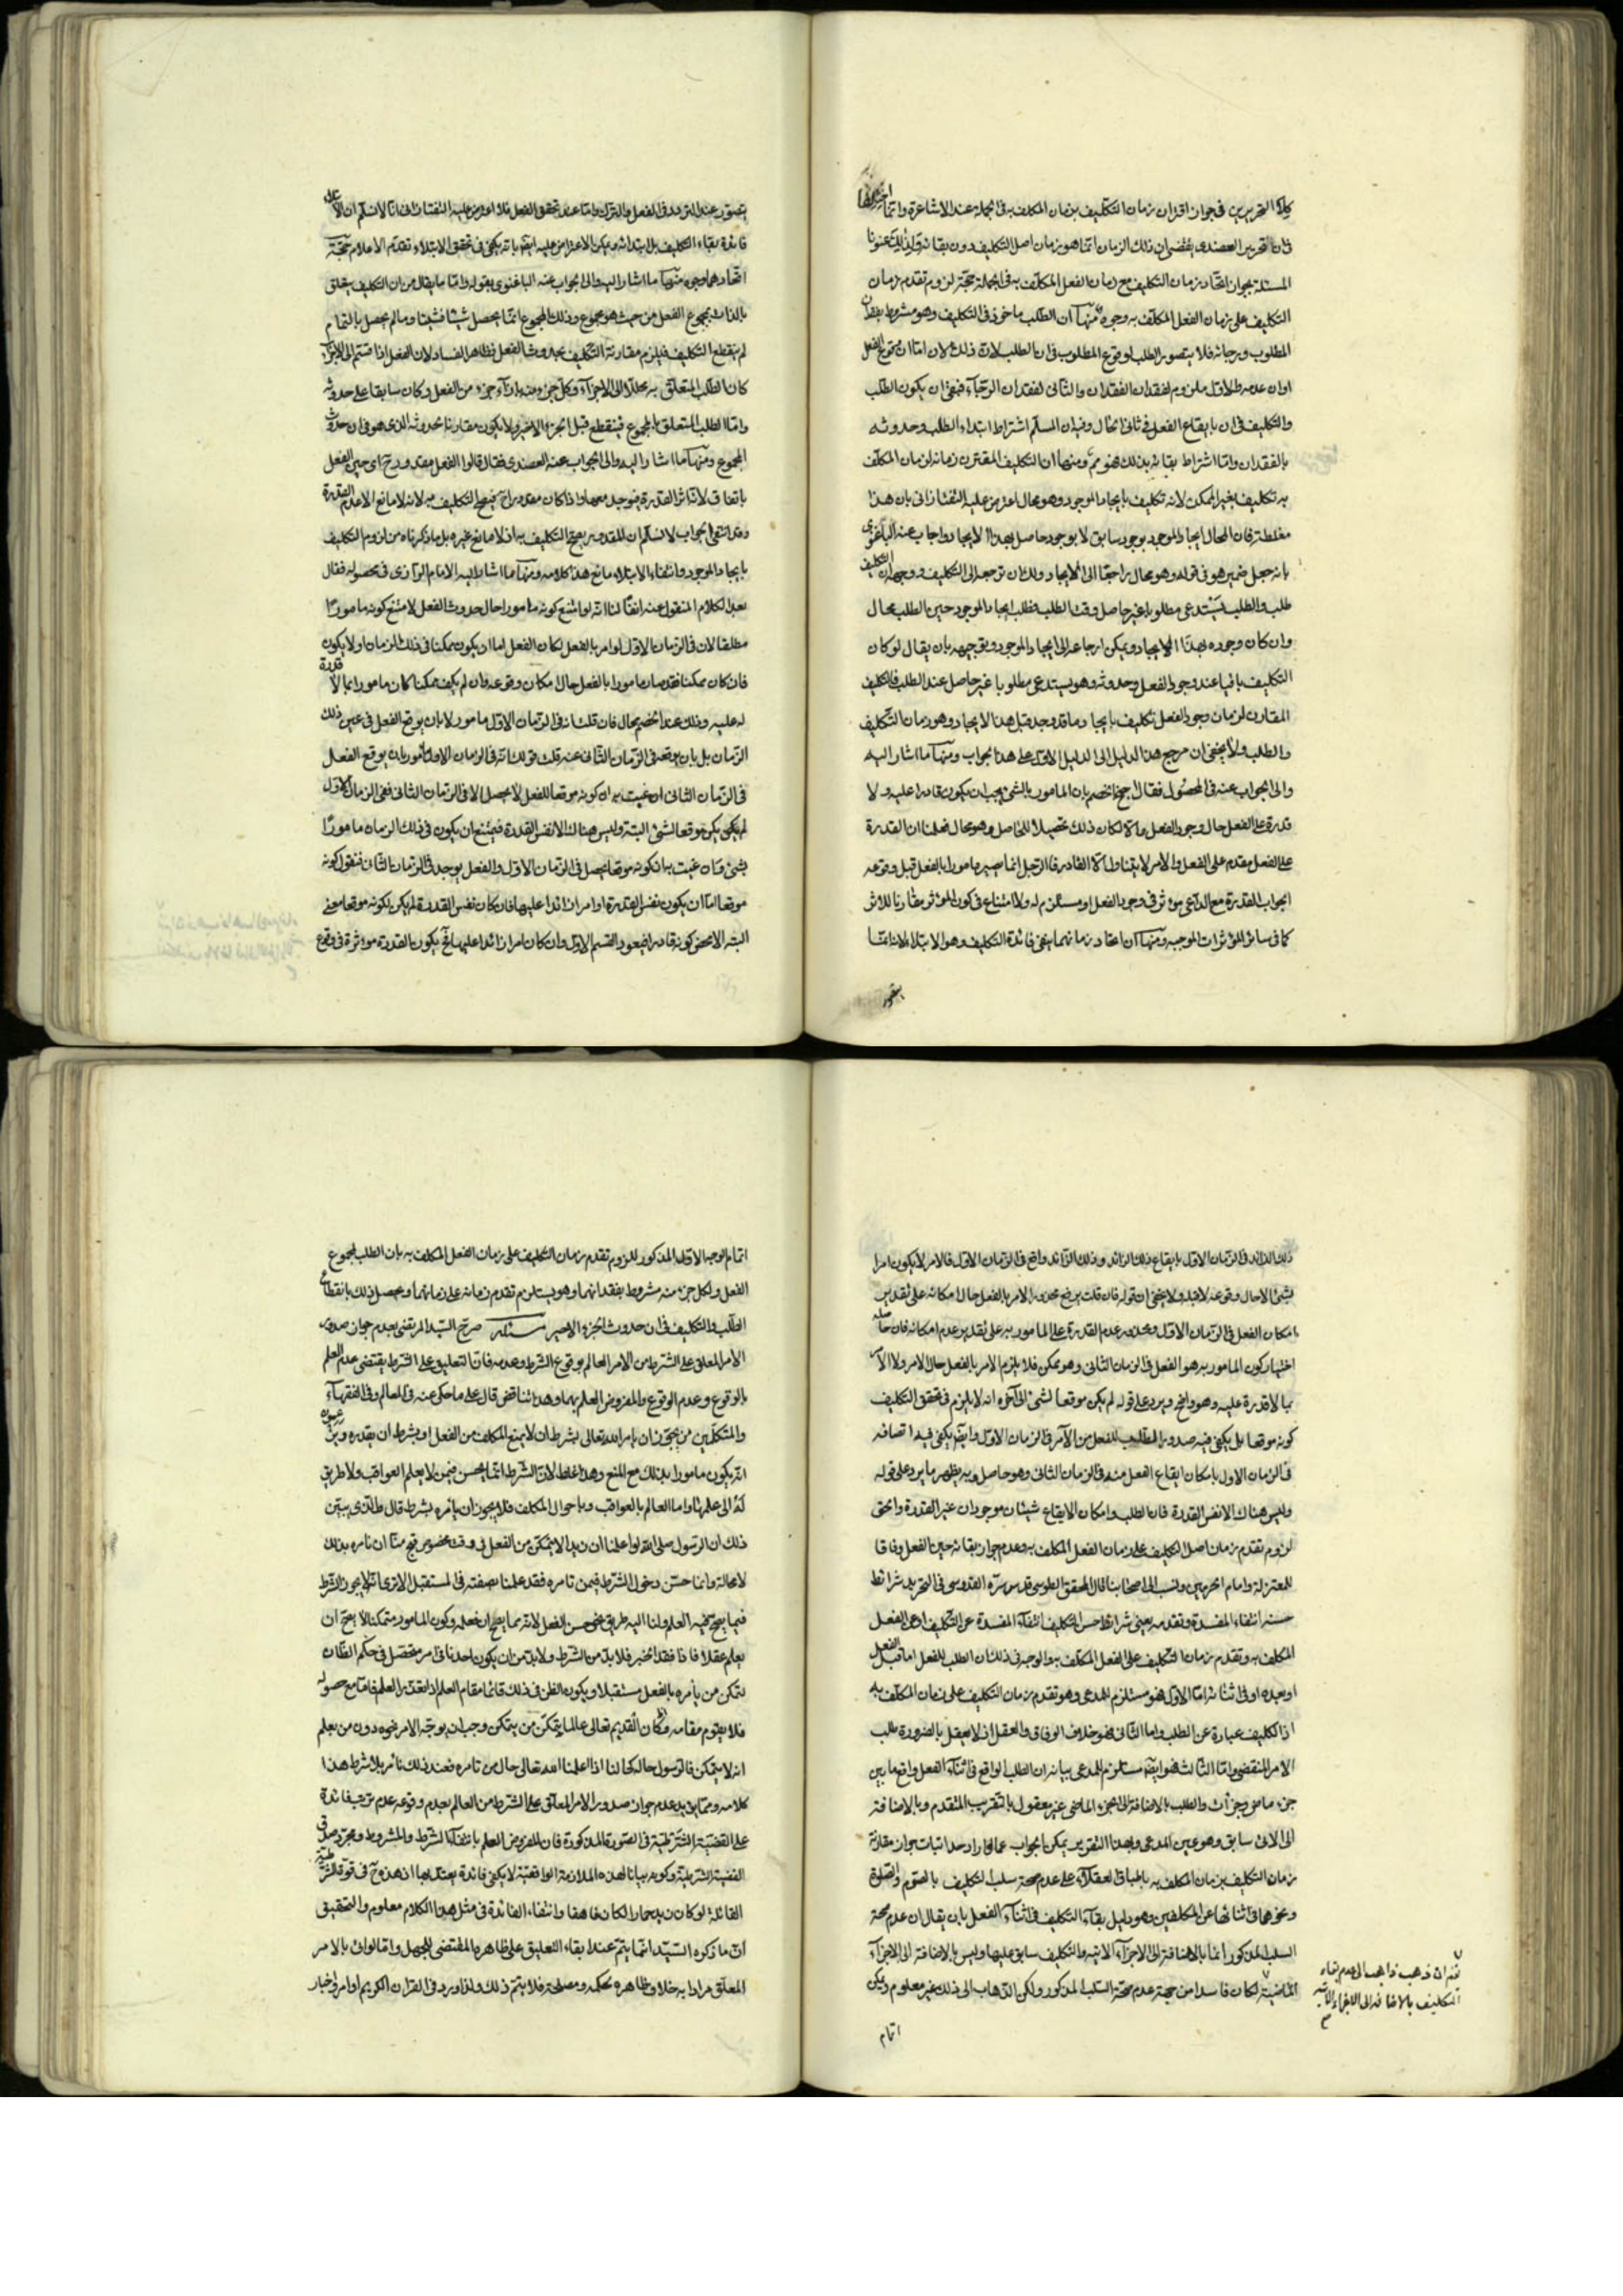 كلا التحريرين في جواز اقتران زمان التكليف بزمان المكلف به في الجملة عند الاشاعرة وانما اختلفا
فان تحرير العضدي يقتضي ان ذلك الزمان انما هو زمان اصل التكليف دون بقائه ولذلك عنونا
المسئلة بجواز اتحاد زمان التكليف مع زمان الفعل المكلف به في الجملة حجة لزوم تقدم زمان
التكليف على زمان الفعل المكلف به وجوه منها ان الطلب ماخوذ في التكليف وهو مشروط بفقدان
المطلوب ورجائه فلا يتصور الطلب لو وقع المطلوب فان الطلب لازم ذلك لان اما ان يتحقق الفعل
او ان عدمه فالاول ملزوم لفقدان الفقدان والثاني لفقدان الرجاء فبقي ان يكون الطلب
والتكليف في ان بايقاع الفعل في ثاني الحال وفيه ان المسلم اشتراط ابتداء الطلب وحدوثه
بالفقدان واما اشتراط بقائه بذلك فهو مم ومنها ان التكليف المقترن زمانه لزمان المكلف
به تكليف بغير الممكن لانه تكليف بايجاد الموجود وهو محال اعترض عليه التفتازاني بان هذا
مغلطة فان المحال ايجاد الموجود بوجود سابق لا بوجود حاصل بهذا الايجاد واجاب عنه الباغنوي
بانه جعل ضمير هو في قوله وهو محال راجعا الى الايجاد ولك ان ترجعه الى التكليف ووجهه ان التكليف
طلب والطلب يستدعي مطلوبا غير حاصل وقت الطلب فطلب ايجاد الموجود حين الطلب محال
وان كان وجوده بهذا الايجاد ويمكن ارجاعه الى ايجاد الموجود وتوجيهه بان يقال لو كان
التكليف باقيا عند وجود الفعل وحدوثه وهو يستدعي مطلوبا غير حاصل عند الطلب فالتكليف
المقارن لزمان وجود الفعل تكليف بايجاد ما قد وجد قبل هذا الايجاد وهو زمان التكليف
والطلب ولا يخفى ان مرجع هذا الدليل الى الدليل الاول على هذا الجواب ومنها ما اشار اليه
والى الجواب عنه في المحصول فقال احتج الخصم بان المامور بالشئ يجب ان يكون قادرا عليه ولا
قدرة على الفعل حال وجود الفعل والا لكان ذلك تحصيلا للحاصل وهو محال فعلمنا ان القدرة
على الفعل مقدم على الفعل والامر لا يتناول الا القادر فالرجل انما يصير مامورا بالفعل قبل وقوعه
الجواب القدرة مع الداعي مؤثر في وجود الفعل او مستلزم له ولا امتناع في كون المؤثر مقارنا للاثر
كما في سائر المؤثرات الموجبه ومنها ان اتحاد زمانهما ينفي فائدة التكليف وهو الابتلاء لانه انما
يتصور
يتصور عند التردد في الفعل والترك واما عند تحقق الفعل فلا اعترض عليه التفتازاني بانا لا نسلم ان الابتلاء
فائدة بقاء التكليف بل ابتدائه ويمكن الاعتراض عليه ايضا بانه يكفي في تحقق الابتلاء تقدم الاعلام حجة
اتحادهما وجوه منها ما اشار اليه والى جواب عنه الباغنوي بقوله واما ما يقال من ان التكليف يتعلق
بالذات بمجموع الفعل من حيث هو مجموع وذلك المجموع انما يحصل شيئا فشيئا وما لم يحصل بالتمام
لم ينقطع التكليف فيلزم مقارنة التكليف بحدوث الفعل فظاهر الفساد لان الفعل اذا قسم الى الاجزاء
كان الطلب المتعلق به محللا الى الاجزاء وكل جزء منه بازاء جزء من الفعل وكان سابقا على حدوثه
واما الطلب المتعلق بالمجموع فينقطع قبل الجزء الاخير ولا يكون مقارنا لحدوثه الذي هو في ان حدوث
المجموع ومنها ما اشار اليه والى الجواب عنه العضدي فقال قالوا الفعل مقدور ح اي حين الفعل
باتفاق لانه اثر القدرة فيوجد معها واذا كان مقدورا ح فيصح التكليف به لانه لا مانع الا عدم القدرة
وقد انتفى الجواب لا نسلم ان المقدور يصح التكليف به اذ لا مانع غيره بل ما ذكرناه من لزوم التكليف
بايجاد الموجود وانتفاء الابتلاء مانع هذا كلامه ومنها ما اشار اليه الامام الرازي في محصوله فقال
بعد الكلام المنقول عنه انفا لنا انه لو امتنع كونه مامورا حال حدوث الفعل لامتنع كونه مامورا
مطلقا لان في الزمان الاول لو امر بالفعل لكان الفعل اما ان يكون ممكنا في ذلك الزمان او لا يكون
فان كان ممكنا فقد صار مامورا بالفعل حال امكان وقوعه وان لم يكن ممكنا كان مامورا بما لا قدرة
له عليه وذلك عند الخصم محال فان قلت انه في الزمان الاول مامور لا بان يوقع الفعل في عين ذلك
الزمان بل بان يوقعه في الزمان الثاني عنه قلت قولك انه في الزمان الاول مامور بان يوقع الفعل
في الزمان الثاني ان عنيت به ان كونه موقعا للفعل لا يحصل الا في الزمان الثاني ففي الزمان الاول
لم يكن موقعا لشئ البتة وليس هناك الا نفس القدرة فيمتنع ان يكون في ذلك الزمان مامورا
بشئ وان عنيت به ان كونه موقعا يحصل في الزمان الاول والفعل يوجد في الزمان الثاني فنقول كونه
موقعا اما ان يكون نفس القدرة او امرا زائدا عليها فان كان نفس القدرة لم يكن لكونه موقعا معنى
البتة الا محض كونه قادرا فيعود القسم الاول وان كان امرا زائدا عليها فح يكون القدرة مؤثرة في وقوع
ذلك الزائد في الزمان الاول بايقاع ذلك الزائد وذلك الزائد واقع في الزمان الاول فالامر لا يكون امرا
بشئ الا حال وقوعه لا قبله ولا يخفى ان قوله فان قلت يرفع محذور الامر بالفعل حال امكانه على تقدير
امكان الفعل في الزمان الاول ومحذور عدم القدرة على المامور به على تقدير عدم امكانه فان حاصله
اختيار كون المامور به هو الفعل في الزمان الثاني وهو ممكن فلا يلزم الامر بالفعل حال الامر ولا الامر
بما لا قدرة عليه وهو واضح ويرد على قوله لم يكن موقعا لشئ الى آخره انه لا يلزم في تحقق التكليف
كونه موقعا بل يكفي فيه صدور الطلب للفعل من الآمر في الزمان الاول وايضا يكفي فيه اتصافه
في الزمان الاول بامكان ايقاع الفعل منه في الزمان الثاني وهو حاصل وبه يظهر ما يرد على قوله
وليس هناك الا نفس القدرة فان الطلب وامكان الايقاع شيئان موجودان غير القدرة والحق
لزوم تقدم زمان اصل التكليف على زمان الفعل المكلف به وعدم جواز بقائه حين الفعل وفاقا
للمعتزلة وامام الحرمين ونسب الى اصحابنا قال المحقق الطوسي قدس سره القدوسي في التجريد شرائط
حسنه انتفاء المفسدة وتقدمه يعني شرائط حسن التكليف انتفاء المفسدة عن التكليف او عن الفعل
المكلف به وتقدم زمان التكليف على الفعل المكلف به والوجه في ذلك ان الطلب للفعل اما قبل الفعل
او بعده او في اثنائه اما الاول فهو مستلزم للمدعى وهو تقدم زمان التكليف على زمان المكلف به
اذ التكليف عبارة عن الطلب واما الثاني فهو خلاف الوفاق والعقل اذ لا يعقل بالضرورة طلب
الامر المنقضي واما الثالث فهو ايضا مستلزم للمدعى بيانه ان الطلب الواقع في اثناء الفعل واقع ما بين
جزء ماض وجزء آت والطلب بالاضافة الى الجزء الماضي غير معقول بالتقريب المتقدم وبالاضافة
الى الاتي سابق وهو عين المدعى وبهذا التقرير يمكن الجواب عما لو اراد احد اثبات جواز مقارنة
زمان التكليف بزمان المكلف به باطباق العقلاء على عدم صحة سلب التكليف بالصوم والصلوة
ونحوهما في اثنائها عن المكلفين وهو دليل بقاء التكليف في اثناء الفعل بان يقال ان عدم صحة
السلب المذكور انما بالاضافة الى الاجزاء الاتية والتكليف سابق عليها وليس بالاضافة الى الاجزاء
الماضية لكان فاسدا من جهة عدم صحة السلب المذكور ولكن الذهاب الى ذلك غير معلوم ويمكن
نعم ان ذهب ذاهب الى عدم بقاء
التكليف بالاضافة الى الاجزاء الاتية
اتمام
اتمام الوجه الاول المذكور للزوم تقدم زمان التكليف على زمان الفعل المكلف به بان الطلب لمجموع
الفعل ولكل جزء منه مشروط بفقدانهما وهو يستلزم تقدم زمانه على زمانهما ويحصل ذلك بانقطاع
الطلب والتكليف في ان حدوث الجزء الاخير مسئلة صرح السيد المرتضى بعدم جواز صدور
الامر المعلق على الشرط من الامر العالم بوقوع الشرط وعدمه فان التعليق على الشرط يقتضي عدم العلم
بالوقوع وعدم الوقوع والمفروض العلم بهما وهذا تناقض قال على ما حكي عنه في المعالم وفي الفقهاء
والمتكلمين من يجوز ان يامر الله تعالى بشرط ان لا يمنع المكلف من الفعل او بشرط ان يقدره ويزعمون
انه يكون مامورا بذلك مع المنع وهذا غلط لان الشرط انما يحسن فيمن لا يعلم العواقب ولا طريق
له الى علمها واما العالم بالعواقب وباحوال المكلف فلا يجوز ان يامره بشرط قال والذي يبين
ذلك ان الرسول صلى الله لو اعلمنا ان زيدا لا يتمكن من الفعل في وقت مخصوص قبح منا ان نامره بذلك
لا محالة وانما حسن دخول الشرط فيمن نامره فقد علمنا بصفته في المستقبل الا ترى انه لا يجوز الشرط
فيما يصح فيه العلم ولنا اليه طريق نحو حسن الفعل لانه مما يصح ان نعلمه وكون المامور متمكنا لا يصح ان
يعلم عقلا فاذا فقد الخبر فلا بد من الشرط ولا بد من ان يكون احدنا في امره يحصل في حكم الظان
لتمكن من يأمره بالفعل مستقبلا ويكون الظن في ذلك قائما مقام العلم اذا تعذر العلم فاما مع حصوله
فلا يقوم مقامه واذا كان القديم تعالى عالما بتمكن من يتمكن وجب ان يوجه الامر نحوه دون من يعلم
انه لا يتمكن فالرسول حاله كحالنا اذا اعلمنا الله تعالى حال من نامره فعند ذلك نامر بلا شرط هذا
كلامه ومما يؤيد عدم جواز صدور الامر المعلق على الشرط من العالم بعدم وقوعه عدم ترتب فائدة
على القضية الشرطية في الصورة المذكورة فان المفروض العلم بانتفاء الشرط والمشروط ومجرد صدق
القضية الشرطية وكونه بيانا لهذه الملازمة الواقعية لا يكفي فائدة يعتد بها اذ هذه ح في قوة الشرطية
القائلة لو كان زيد حمارا لكان ناهقا وانتفاء الفائدة في مثل هذا الكلام معلوم والتحقيق
ان ما ذكره السيد انما يتم عند ابقاء التعليق على ظاهره المقتضي للجهل واما لو اتى بالامر
المعلق مرادا به خلاف ظاهره لحكمة ومصلحة فلا يتم ذلك ولذا ورد في القران الكريم اوامر واخبار